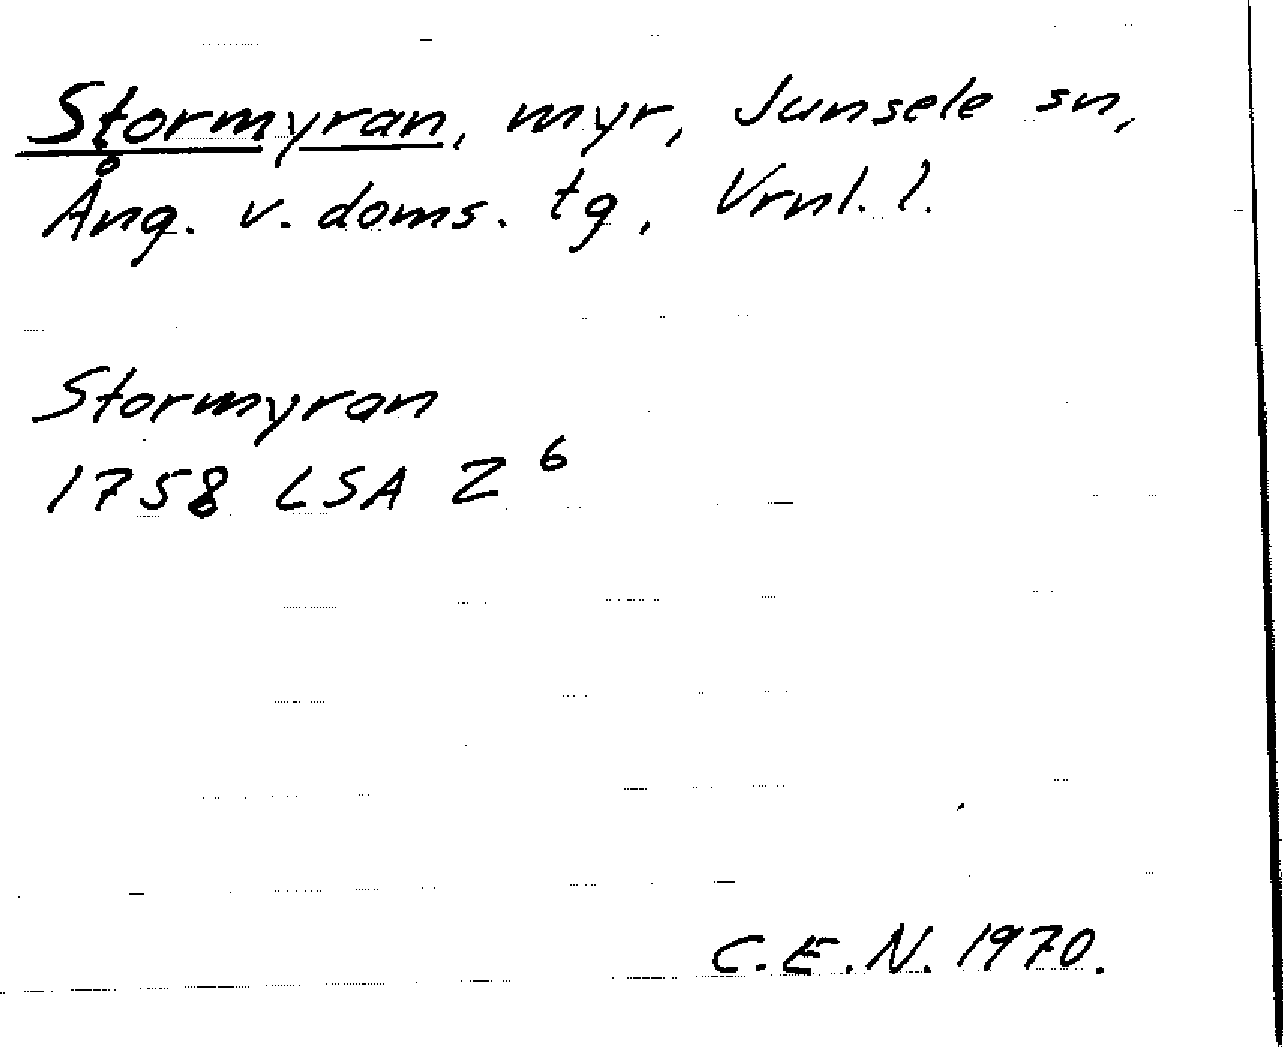 Stormyran, myr, Junsele sn,
Ång. v. doms. tg, Vrnl. l.
Stormyran
1758 LSA Z 6
C.E.N. 1970.